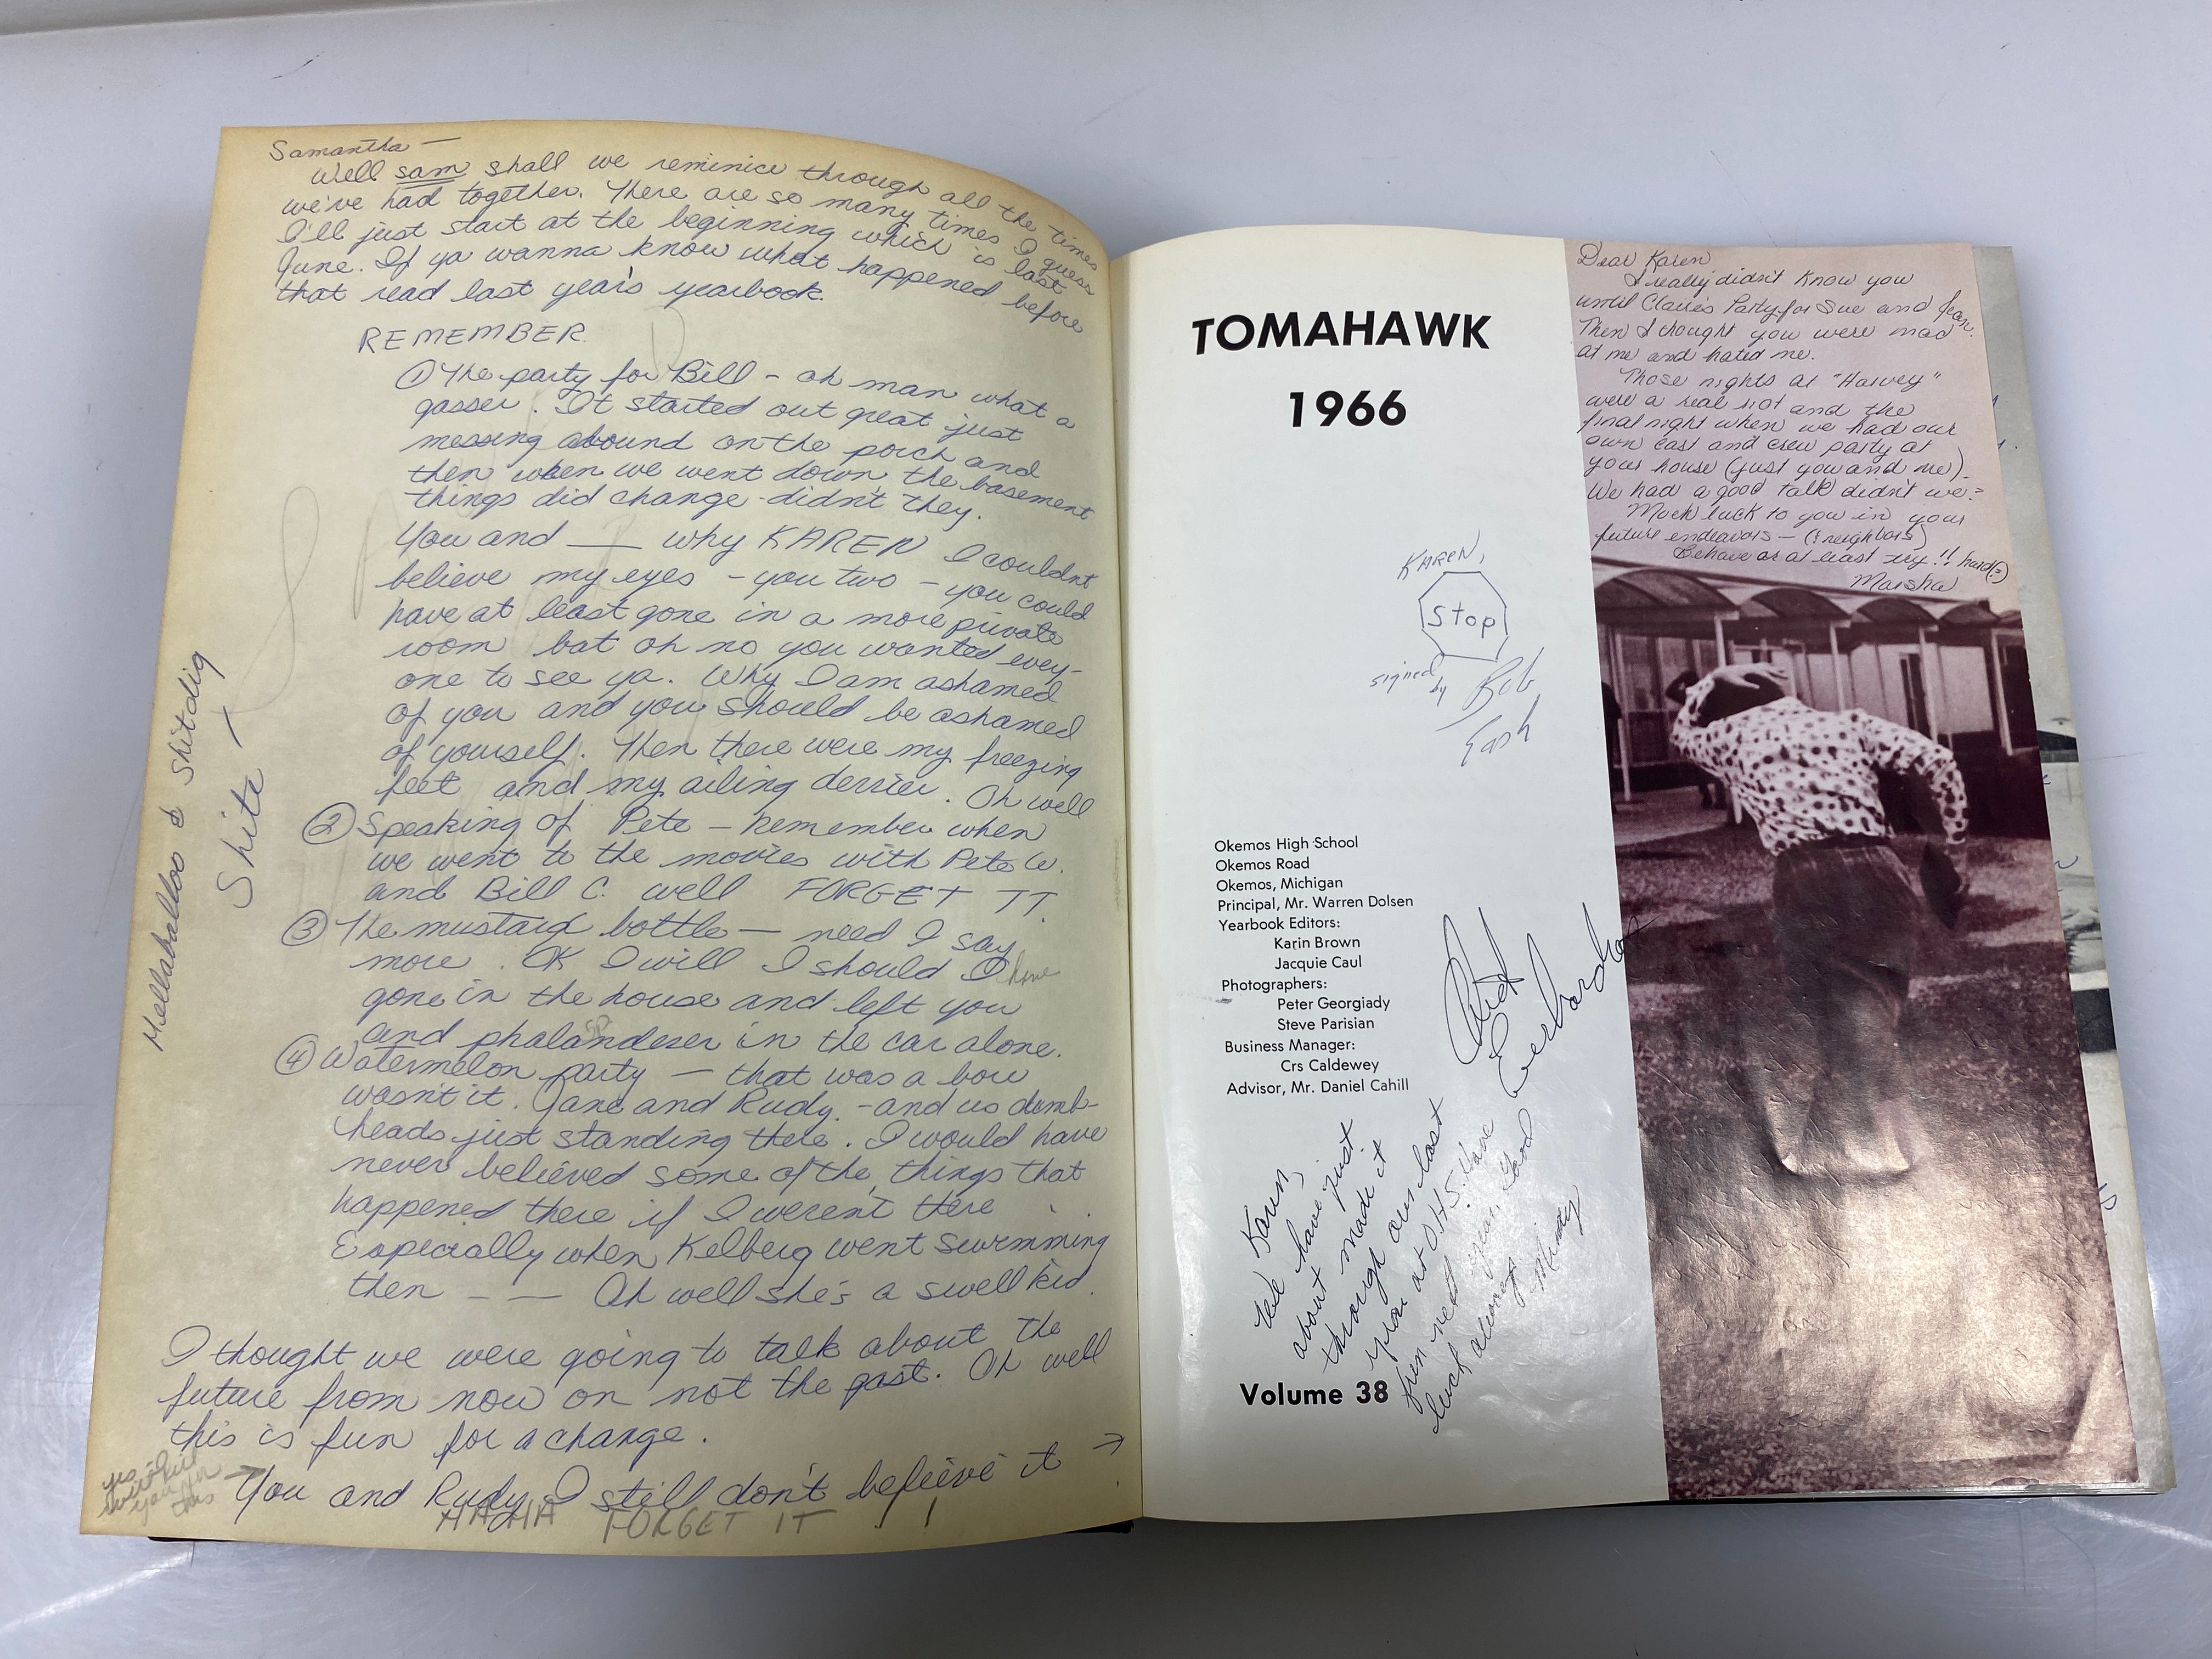 Samantha —
Well sam shall we reminice through all the times
we've had together. There are so many times I guess
I'll just start at the beginning which is last
June. If ya wanna know what happened before
that read last year's yearbook.
REMEMBER
① The party for Bill - oh man what a
gasser. It started out great just
messing abound on the porch and
then when we went down the basement
things did change - didn't they.
You and —— why KAREN I couldnt
believe my eyes - you two - you could
have at least gone in a more private
room but oh no you wanted evey-
one to see ya. Why I am ashamed
of you and you should be ashamed
of yourself. Then there were my freezing
feet and my ailing derrier. Oh well
② Speaking of Pete — remember when
we went to the movies with Pete W.
and Bill C. well FORGET IT.
③ The mustard bottle — need I say
more. OK I will I should have
gone in the house and left you
and phalandeser in the car alone.
④ Watermelon party — that was a bow
wasn't it. Jane and Rudy - and us dumb-
heads just standing there. I would have
never believed some of the things that
happened there if I weren't there
Especially when Kelberg went swimming
then — — Oh well she's a swell kid.
I thought we were going to talk about the
future from now on not the past. Oh well
this is fun for a change.
You and Rudy I still don't believe it →
HA HA FORGET IT !
Hellaballoo & Shitdig
Shite
TOMAHAWK
1966
KAREN,
Stop
signed by Bob
Eash
Okemos High School
Okemos Road
Okemos, Michigan
Principal, Mr. Warren Dolsen
Yearbook Editors:
Karin Brown
Jacquie Caul
Photographers:
Peter Georgiady
Steve Parisian
Business Manager:
Crs Caldewey
Advisor, Mr. Daniel Cahill
Karin,
We have just
about made it
through our last
year at O.H.S. Have
fun next year, Good
luck always
Mindy
Volume 38
Dear Karen
I really didn't know you
until Claire's Party for Sue and Jean.
Then I thought you were mad
at me and hated me.
Those nights at "Harvey"
were a real riot and the
final night when we had our
own cast and crew party at
your house (just you and me).
We had a good talk didn't we?
Much luck to you in your
future endeavors — (& neighbors)
Behave or at least try!! hard(?)
Marsha